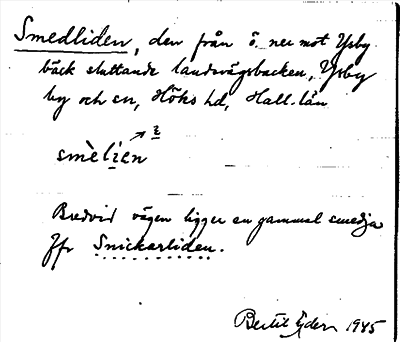 Smedliden, den från ö. ner mot Ysby
bäck sluttande landsvägsbacken, Ysby
by och sn, Höks hd, Hall. län
smèli̲en
Bredvid vägen ligger en gammal smedja
Jfr Snickarliden.
Bertil 1945